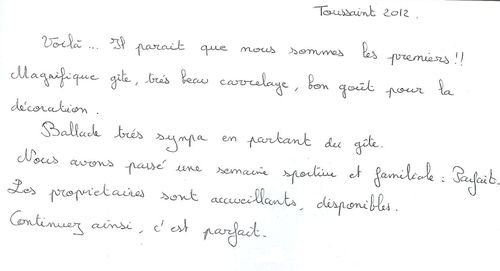 Toussaint 2012.
Voilà... Il parait que nous sommes les premiers!!
Magnifique gîte, très beau carrelage, bon goût pour la
décoration.
Ballade très sympa en partant du gîte.
Nous avons passé une semaine sportive et familiale : Parfait.
Les propriétaires sont accueillants, disponibles.
Continuez ainsi, c'est parfait.